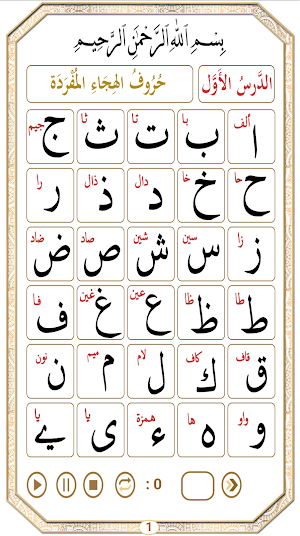 بِسْمِ اللهِ الرَّحْمٰنِ الرَّحِيْمِ
الدَّرسُ الأَوَّل حُرُوفُ الهِجَاءِ المُفْرَدَة
ألف با تا ثا جيم
ا ب ت ث ج
حا خا دال ذال را
ح خ د ذ ر
زا سين شين صاد ضاد
ز س ش ص ض
طا ظا عين غين فا
ط ظ ع غ ف
قاف كاف لام ميم نون
ق ك ل م ن
واو ها همزة يا يا
و ه ء ی ے
: 0
1